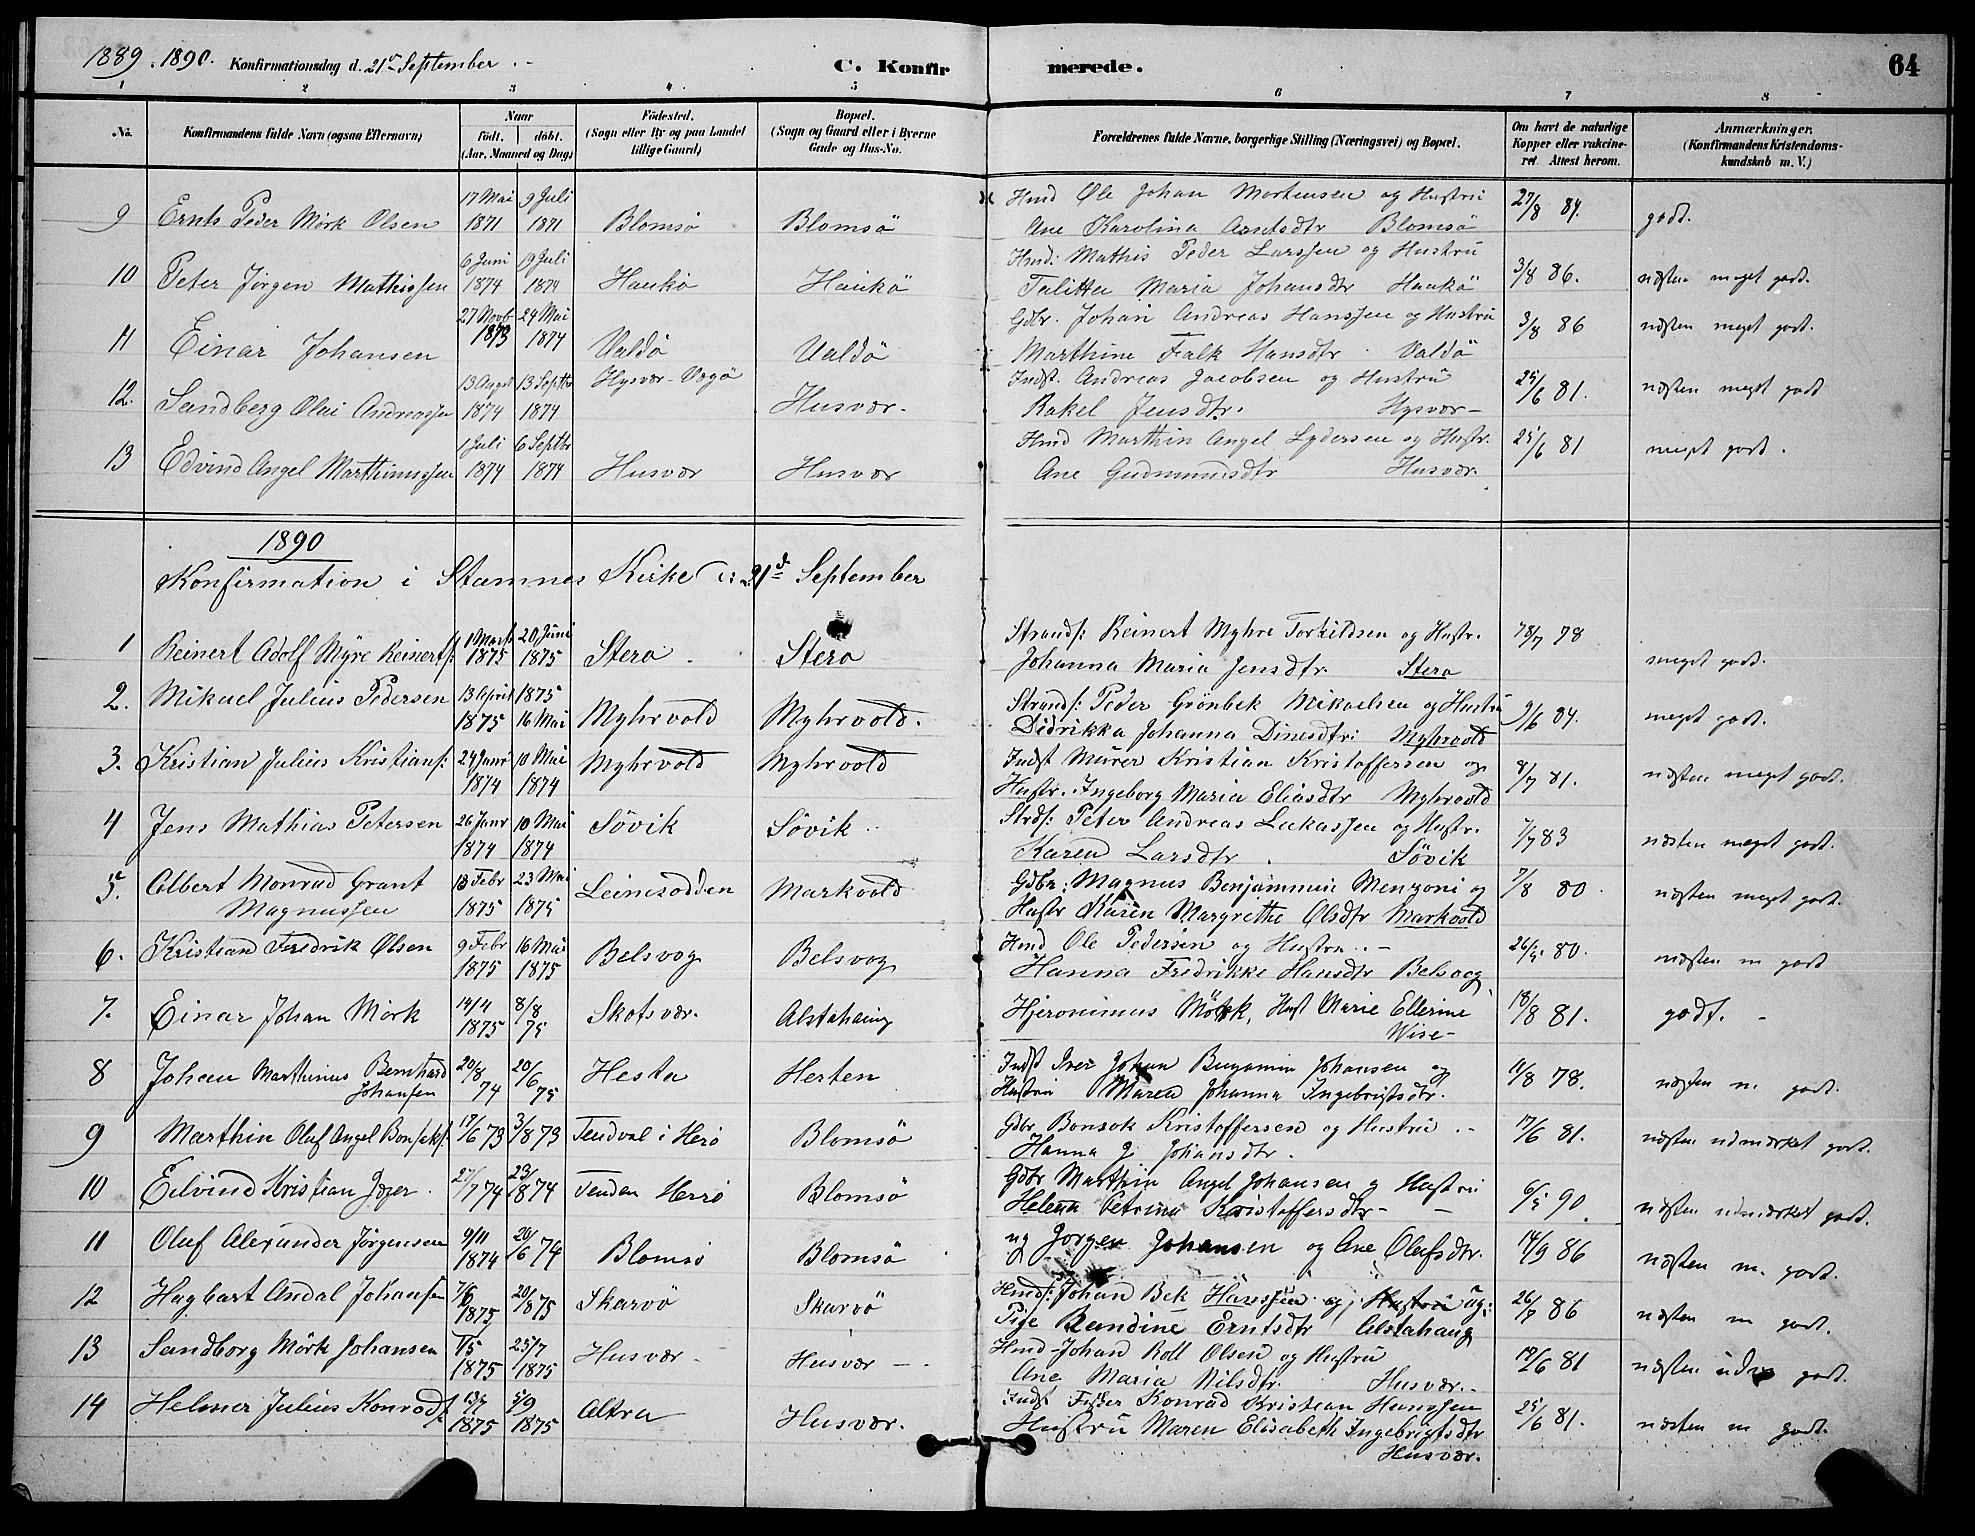 1889. 1890. Konfirmationsdag d. 21de September C. Konfirmerede. 64
1 2 3 4 5 6 7 8
No. Konfirmandens fulde Navn (ogsaa Efternavn) Naar født. døbt. (Aar, Maaned og Dag) Fødested. (Sogn eller By og paa Landet tillige Gaard) Bopæl. (Sogn og Gaard eller i Byerne Gade og Hus-No. Forældrenes fulde Navne, borgerlige Stilling (Næringsvei) og Bopæl. Om havt de naturlige Kopper eller vakcineret. Attest herom. Anmærkninger. (Konfirmandens Kristendomskundskab m. V.)
9 Ernts Peder Mørk Olsen 17 Mai 1871 9 Juli 1871 Blomsø Blomsö Hmd Ole Johan Mortensen og Hustru 27/8 84. godt.
Ane Karolina Arntsdtr Blomsö
10 Peter Jørgen Mathissen 6 Juni 1874 19 Juli 1874 Haukø Haukö Hmd: Mathis Peder Larssen og Hustru 3/8 86. næsten meget godt.
Talitta Maria Johansdtr Haukö
11 Einar Johansen 27 Novb 1873 24 Mai 1874 Valdø Valdö Gdbr. Johan Andreas Hanssen og Hustru 3/8 86 næsten meget godt.
Marthine Falk Hansdtr. Valdö
12. Sandberg Olai Andreassen 13 Augst 1874 13 Septbr 1874 Hysvær - Vegø Husvær. Indst. Andreas Jacobsen og Hustru 25/6 81. næsten meget godt
Rakel Jensdtr. Hysvær -
13 Edvind Angel Marthinussen 1 Juli 1874 6 Septbr 1874 Husvær Husvær Hmd Marthin Angel Lydersen og Hustr. 25/6 81 meget godt.
Ane Gudmundsdtr Husvær.
1890
Konfirmation i Stamnes Kirke d: 21de September
1 Reinert Adolf Myre Reinerts: 1 Marts 1875 20 Juni 1875 Stero. Stero Strands: Reinert Myhre Torkildsen og Hustr. 78 meget godt.
Johanna Maria Jensdtr. Stero
2. Mikael Julius Pedersen 13 April 1875 1875 16 Mai Myhrvold Myhrvold. Strands: Peder Grönbek Mikaelsen og Hustru 9/6 84. meget godt.
Didrikka Johanna Dinesdtr: Myhrvold
3. Kristian Julius Kristians: 24 Janr 1874 10 Mai 1874 Myhrvold Myhrvold Indst Murer Kristian Kristoffersen og 8/7 81. næsten meget godt.
Hustr. Ingeborg Maria Eliasdtr Myhrvold
4 Jens Mathias Petersen 26 Janr 1874 10 Mai 1874 Søvik Søvik Strds: Peter Andreas Lukassen og Hustr. 7/7 83 næsten meget godt.
Karen Larsdtr. Søvik
5. Albert Monrad Grant Magnussen 13 Febr 1875 23 Mai 1875 Leinesodden Markvold Gdbr: Magnus Benjammin Menzoni og 7/8 80. næsten meget godt.
Hustr Karen Margrethe Olsdtr Markvold
6. Kristian Fredrik Olsen 9 Febr 1875 16 Mai 1875 Belsvog Belsvog Hmd Ole Pedersen og Hustru - 80. næsten m godt
Hanna Fredrikke Hansdtr Belsvog
7. Einar Johan Mörk 14/4 1875 8/8 75 Skotsvær. Alstahaug Hjeronimus Mörk, Hust Marie Ellerine 18/8 81. godt. -
Wise -
8 Johan Marthinus Bernhard Johansen 20/8 74 20/6 75 Hesta Herten Indst Iver Johan Benjamin Johansen og 11/8 78. næsten m. godt.
Hustru Maren Johanna Ingebrigtsdtr.
9 Marthin Oluf Angel Bonsaks: 17/6 73 3/8 73 Tenval i Herø Blomsö Gdbr Bonsok Kristoffersen og Hustru - 17/6 81. næsten udmærket godt.
Hanna J. Johansdtr.
10 Edvind Kristian Jeger. 27/7 74 23/ 1874 Tenden Herrö Blomsö Gdbr Marthin Angel Johansen og Hustru 90. næsten udmærket godt.
Helena Petrina Kristoffersdtr -
11 Oluf Alexander Jørgensen 9/11 1874 20/6 74 Blomsö Blomsö ug Jorgen Johansen og Ane Olufsdtr. 14/9 86 næsten m. godt.
12 Hagbart Andal Johansen 7/6 1875 20/ 1875 Skarvö Skarvö Hmds: Johan Bek Hanssen og Hustru ug: 26/7 86 næsten m godt.
Pige Randine Erntsdtr Alstahaug
13 Sandborg Mörk Johansen 1/5 1875 25/7 1875 Husvær - Husvær - Hmd Johan Roll Olsen og Hustru 19/6 81 næsten udm godt.
Ane Maria Nilsdtr. Husvær.
14 Helmer Julius Konrads 13/7 1875 5/9 1875 Altra Husvær. Indst Fisker Konrad Kristian Hanssen 25/6 81. næsten m godt.
Hustru Maren Elisabeth Ingebrigtsdtr
Husvær.